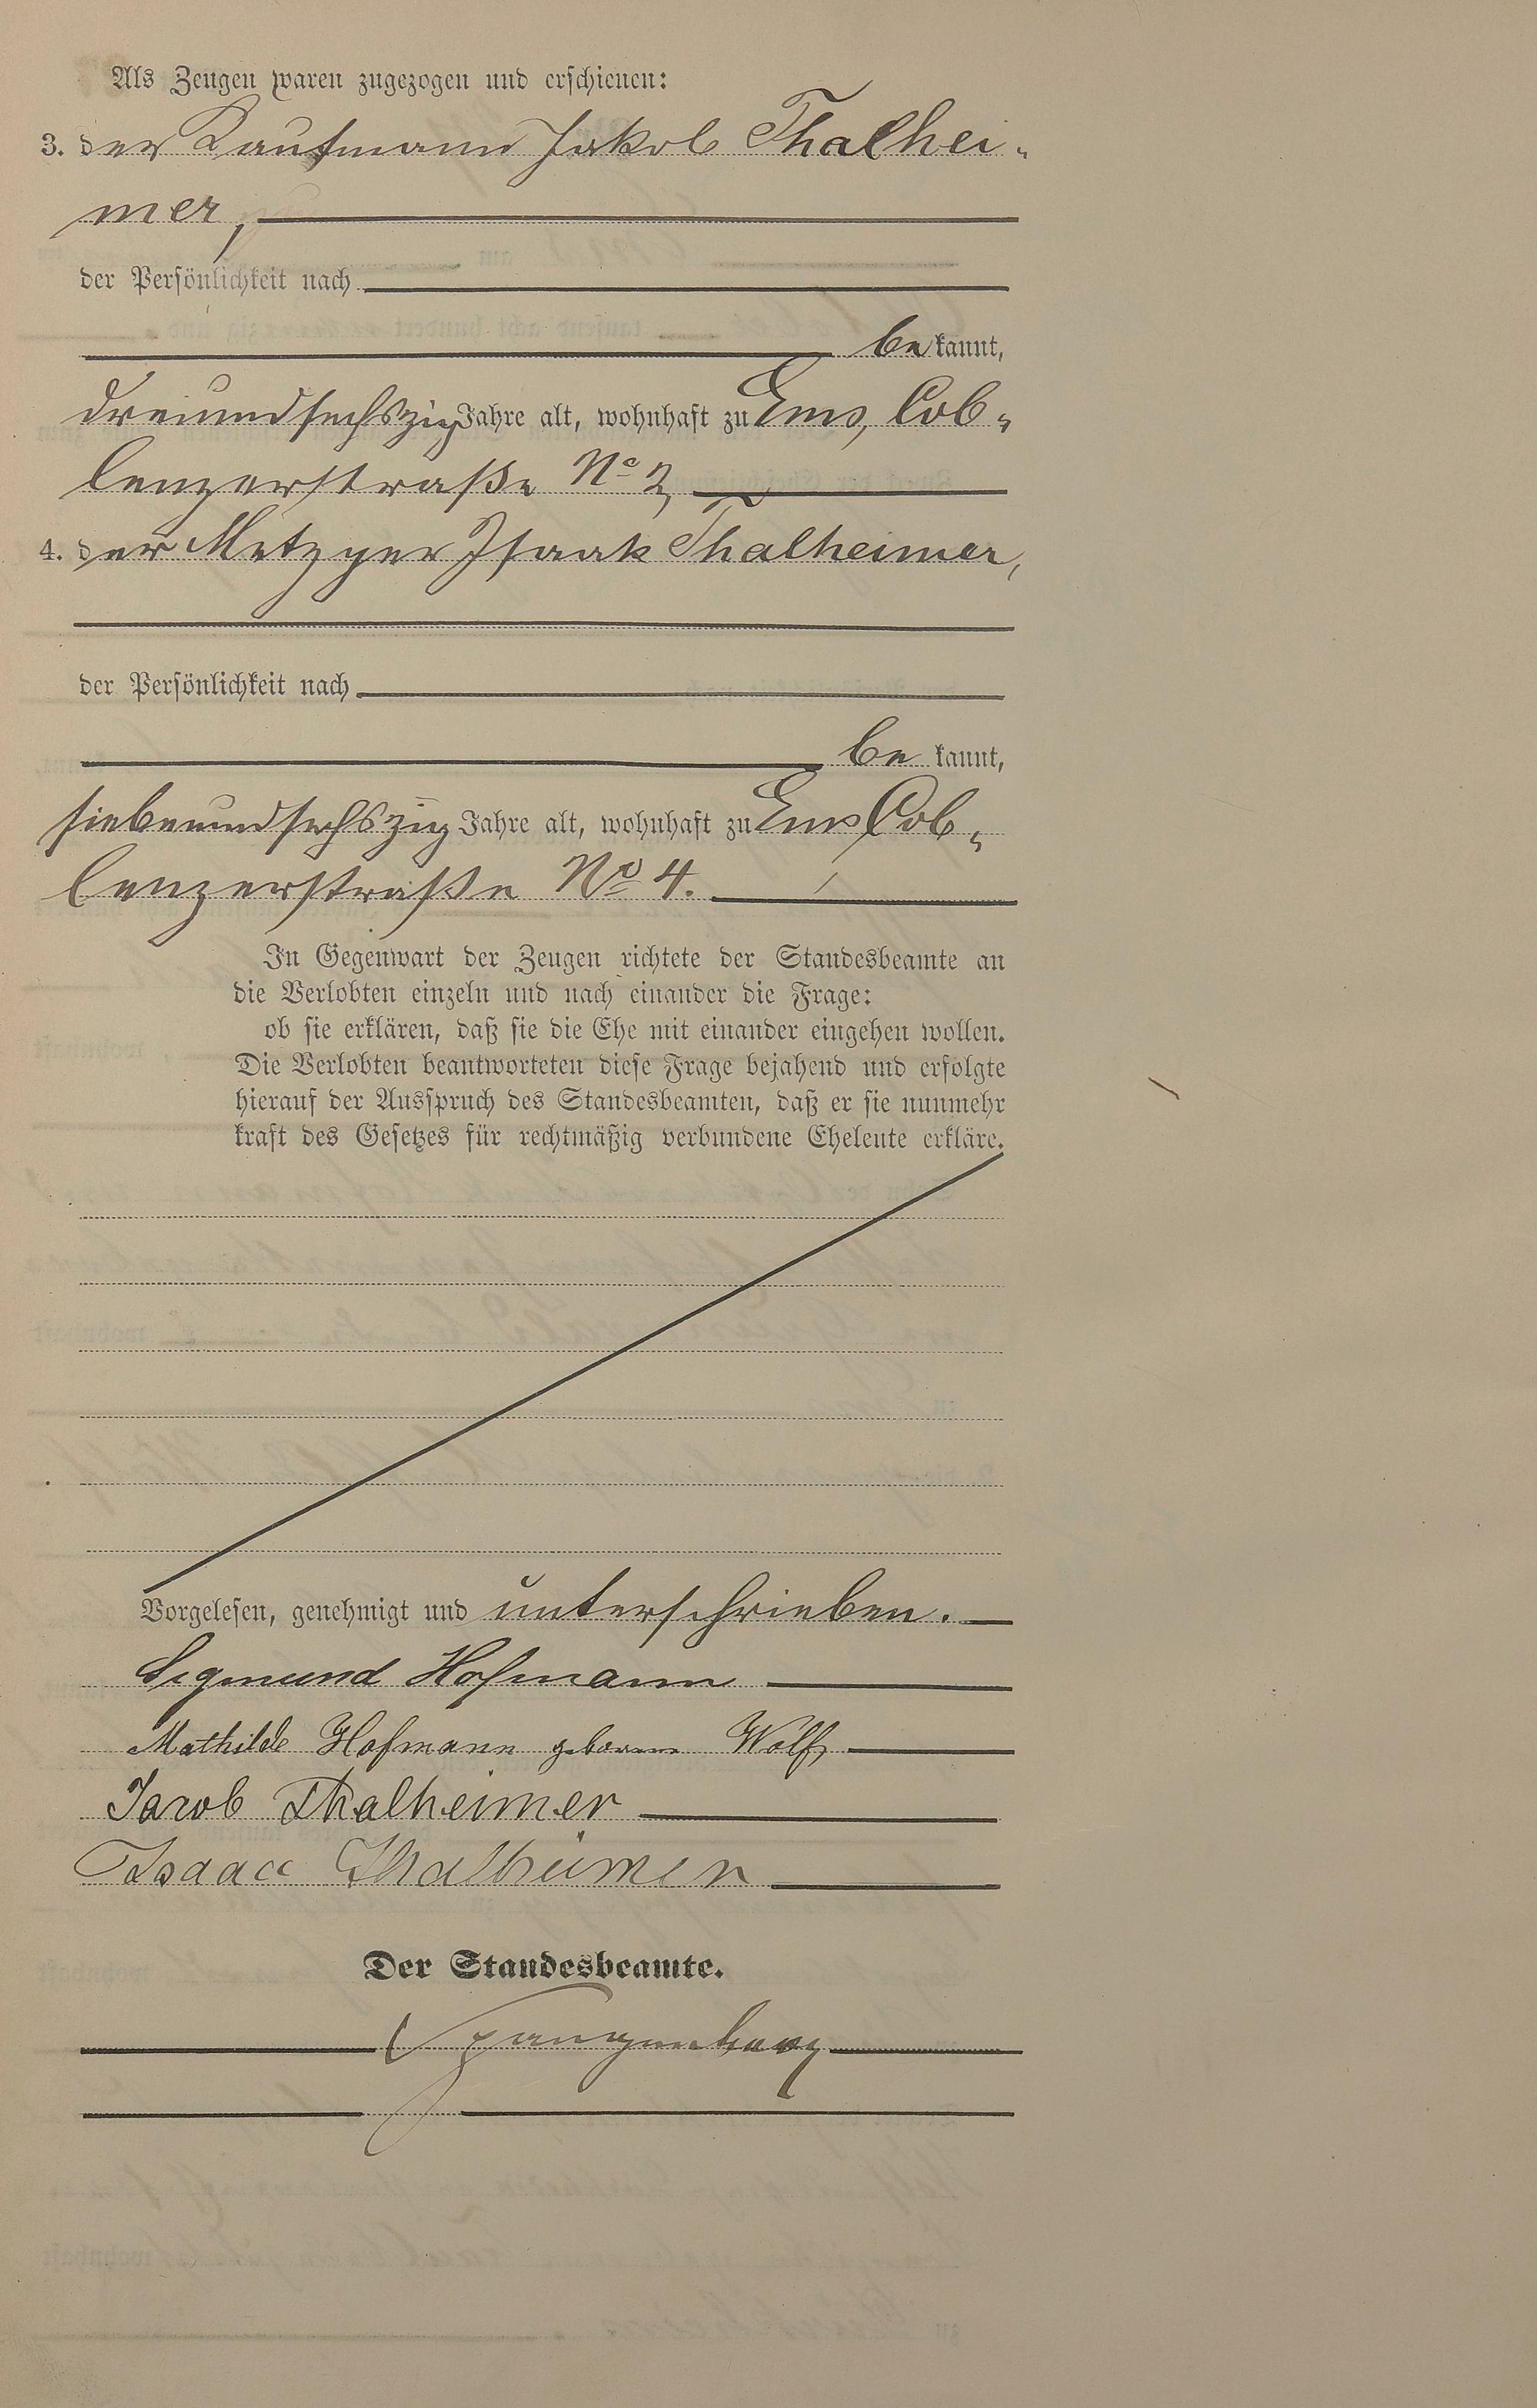 Als Zeugen waren zugezogen und erschienen:
3. der Kaufmann Jakob Thalhei-
mer,
der Persönlichkeit nach
bekannt,
dreiundsechszig Jahre alt, wohnhaft zu Ems, Cob-
lenzerstraße No 2,
4. der Metzger Isaak Thalheimer,
der Persönlichkeit nach
be kannt,
siebenundsechszig Jahre alt, wohnhaft zu Ems, Cob-
lenzerstraße No 4.
In Gegenwart der Zeugen richtete der Standesbeamte an
die Verlobten einzeln und nach einander die Frage:
ob sie erklären, daß sie die Ehe mit einander eingehen wollen.
Die Verlobten beantworteten diese Frage bejahend und erfolgte
hierauf der Ausspruch des Standesbeamten, daß er sie nunmehr
kraft des Gesetzes für rechtmäßig verbundene Eheleute erkläre.
Vorgelesen, genehmigt und unterschrieben.
Sigmund Hofmann
Mathilde Hofmann geborene Wolf
Jacob Thalheimer
Isaac Thalheimer
Der Standesbeamte.
Spangenberg